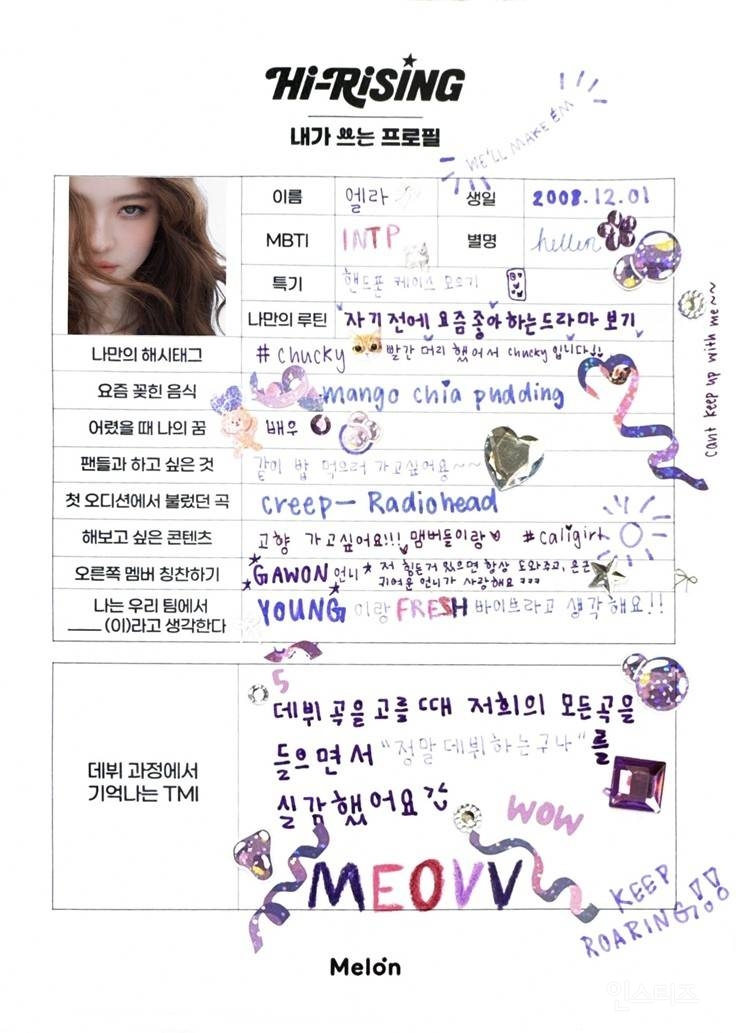 Hi-RiSiNG
내가 쓰는 프로필
WE'LL MAKE EM
이름 엘라 생일 2008.12.01
MBTI INTP 별명 hellen
특기 핸드폰 케이스 모으기
나만의 루틴 자기 전에 요즘 좋아하는 드라마 보기
나만의 해시태그 # chucky 빨간 머리 했어서 chucky 입니다!!
요즘 꽂힌 음식 mango chia pudding
어렸을 때 나의 꿈 배우
팬들과 하고 싶은 것 같이 밥 먹으러 가고싶어용~~
첫 오디션에서 불렀던 곡 creep — Radiohead
해보고 싶은 콘텐츠 고향 가고싶어요!!! 멤버들이랑♥ #caligirl
오른쪽 멤버 칭찬하기 GAWON 언니 저 힘든거 있으면 항상 도와주고, 은근
귀여운 언니가 사랑해요 ㅋㅋㅋ
나는 우리 팀에서
____ (이)라고 생각한다 YOUNG 이랑 FRESH 바이브라고 생각해요!!
cant keep up with me~~
데뷔 과정에서
기억나는 TMI
5
데뷔 곡을 고를 때 저희의 모든곡을
들으면서 "정말 데뷔하는구나"를
실감했어요
WOW
MEOVV
KEEP
ROARING!!
Melon
인스티즈